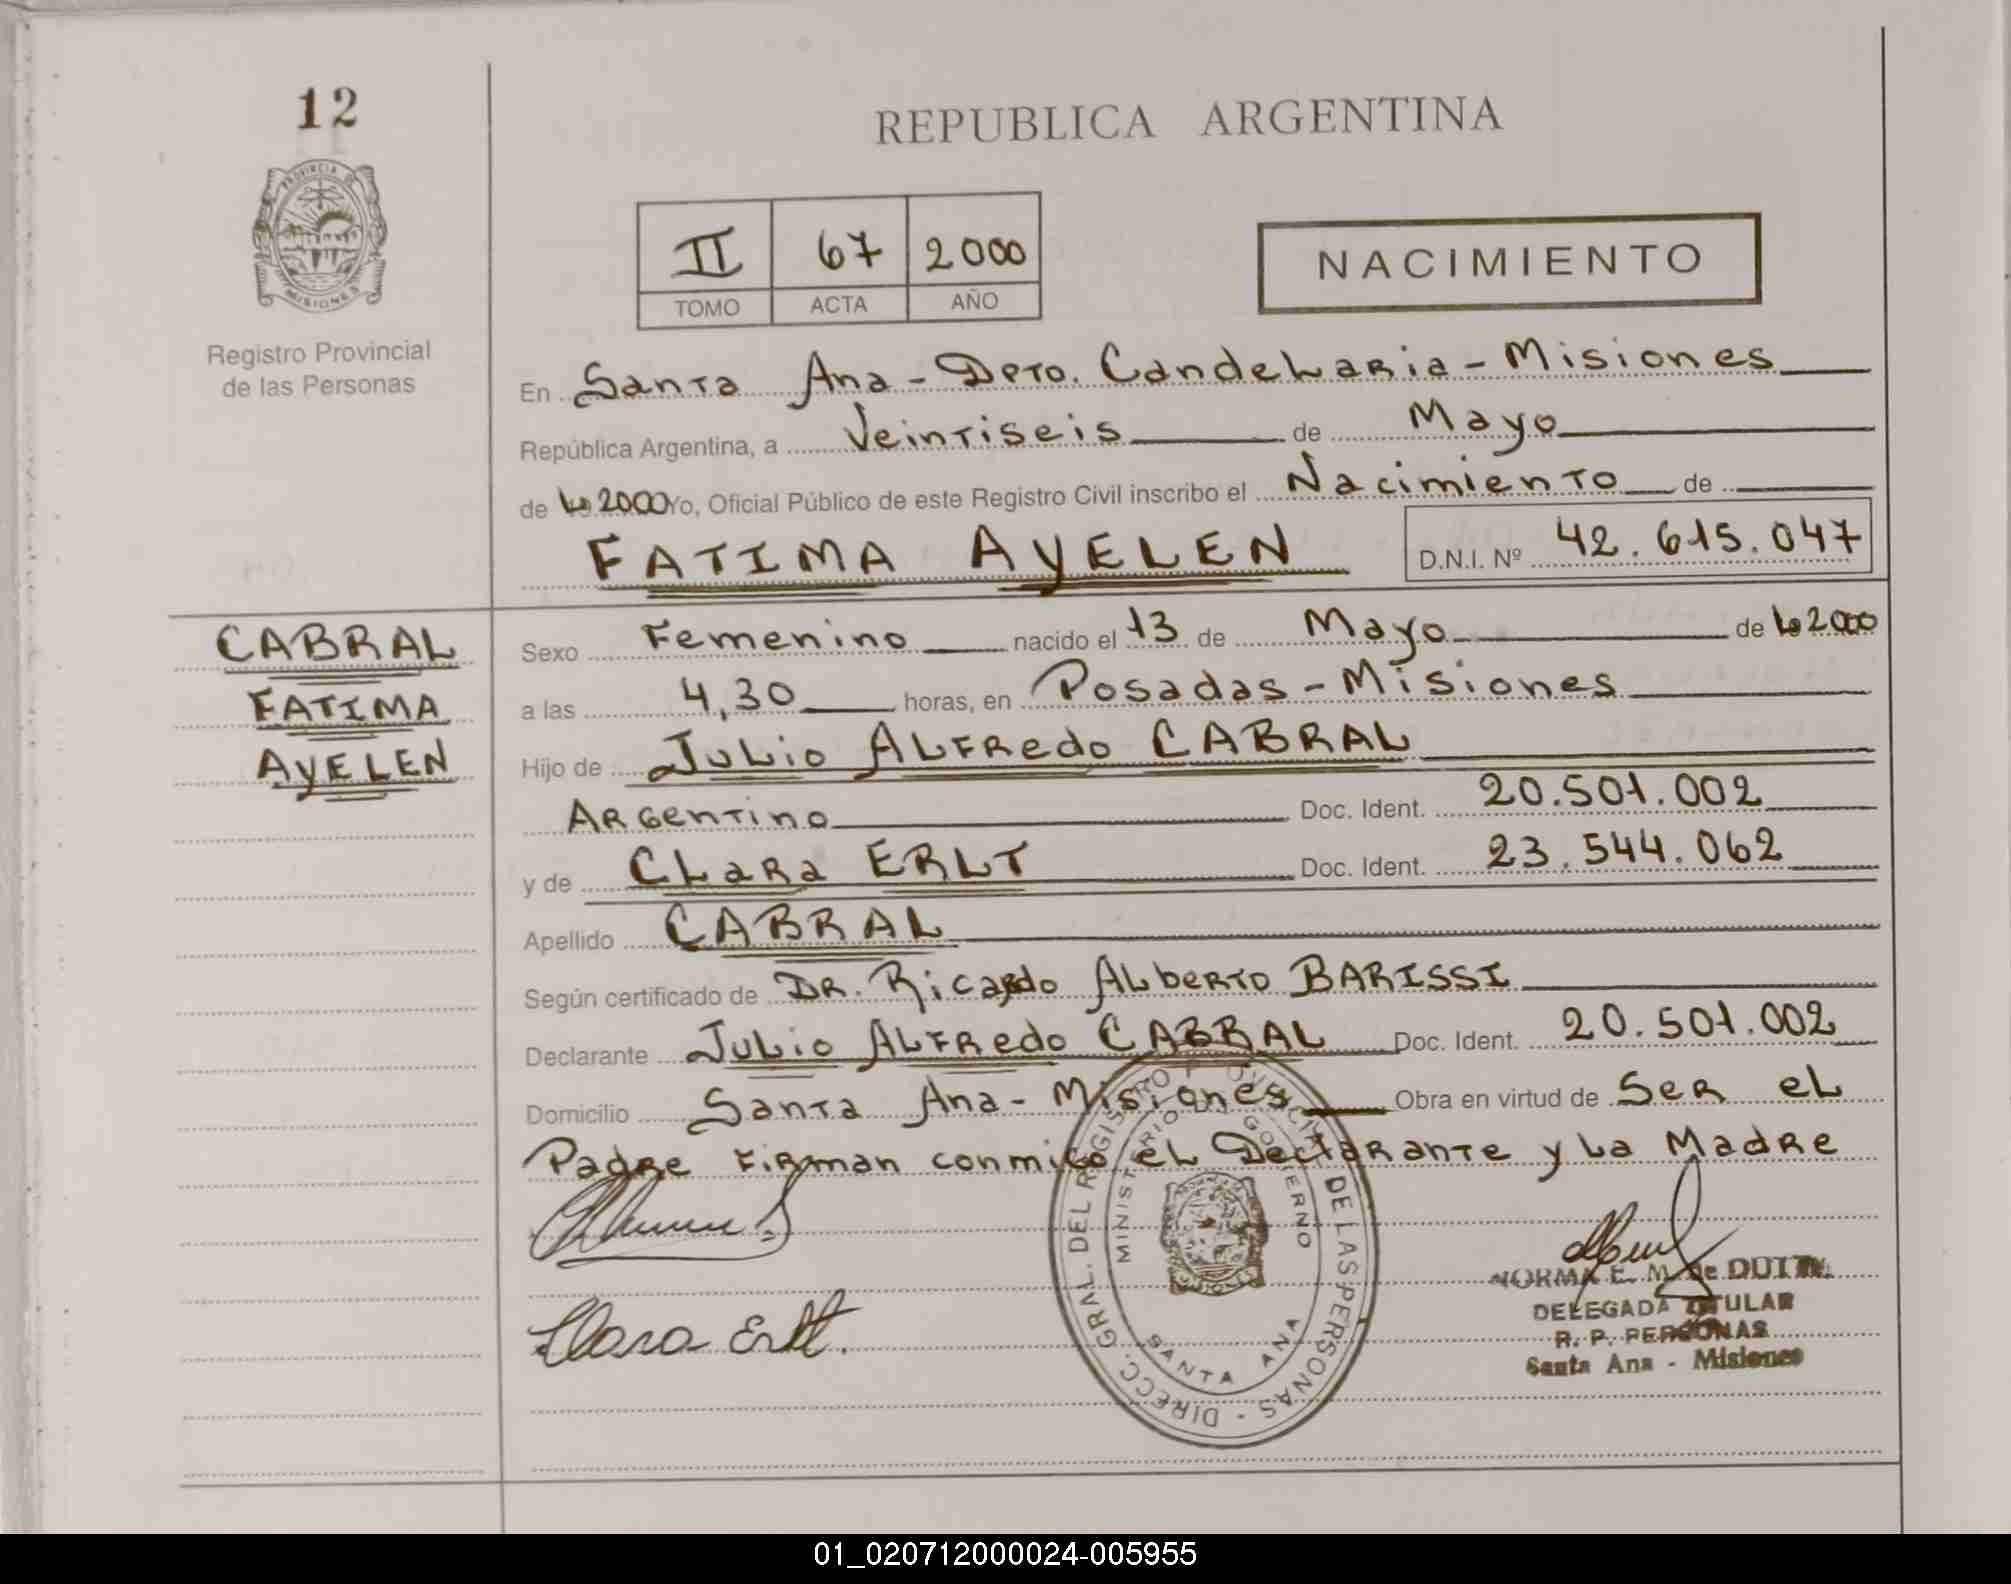 12
PROVINCIA DE
MISIONES
Registro Provincial
de las Personas
REPUBLICA ARGENTINA
II 67 2000
TOMO ACTA AÑO
NACIMIENTO
En Santa Ana - Dpto. Candelaria - Misiones
República Argentina, a Veintiseis de Mayo
de 2000 Yo, Oficial Público de este Registro Civil inscribo el Nacimiento de
FATIMA AYELEN D.N.I. Nº 42.615.047
CABRAL
FATIMA
AYELEN
Sexo Femenino nacido el 13 de Mayo de 2000
a las 4,30 horas, en Posadas - Misiones
Hijo de Julio Alfredo CABRAL
Argentino Doc. Ident. 20.501.002
y de Clara ERLT Doc. Ident. 23.544.062
Apellido CABRAL
Según certificado de DR. Ricardo Alberto BARISSI
Declarante Julio Alfredo CABRAL Doc. Ident. 20.501.002
Domicilio Santa Ana - Misiones Obra en virtud de Ser el
Padre Firman conmigo el Declarante y la Madre
DIRECC. GRAL. DEL REGISTRO PROVINCIAL DE LAS PERSONAS -
MINISTERIO DE GOBIERNO
SANTA ANA
Clara Erlt.
NORMA E. M. de
DELEGADA TITULAR
R. P. PERSONAS
Santa Ana - Misiones
01_020712000024-005955